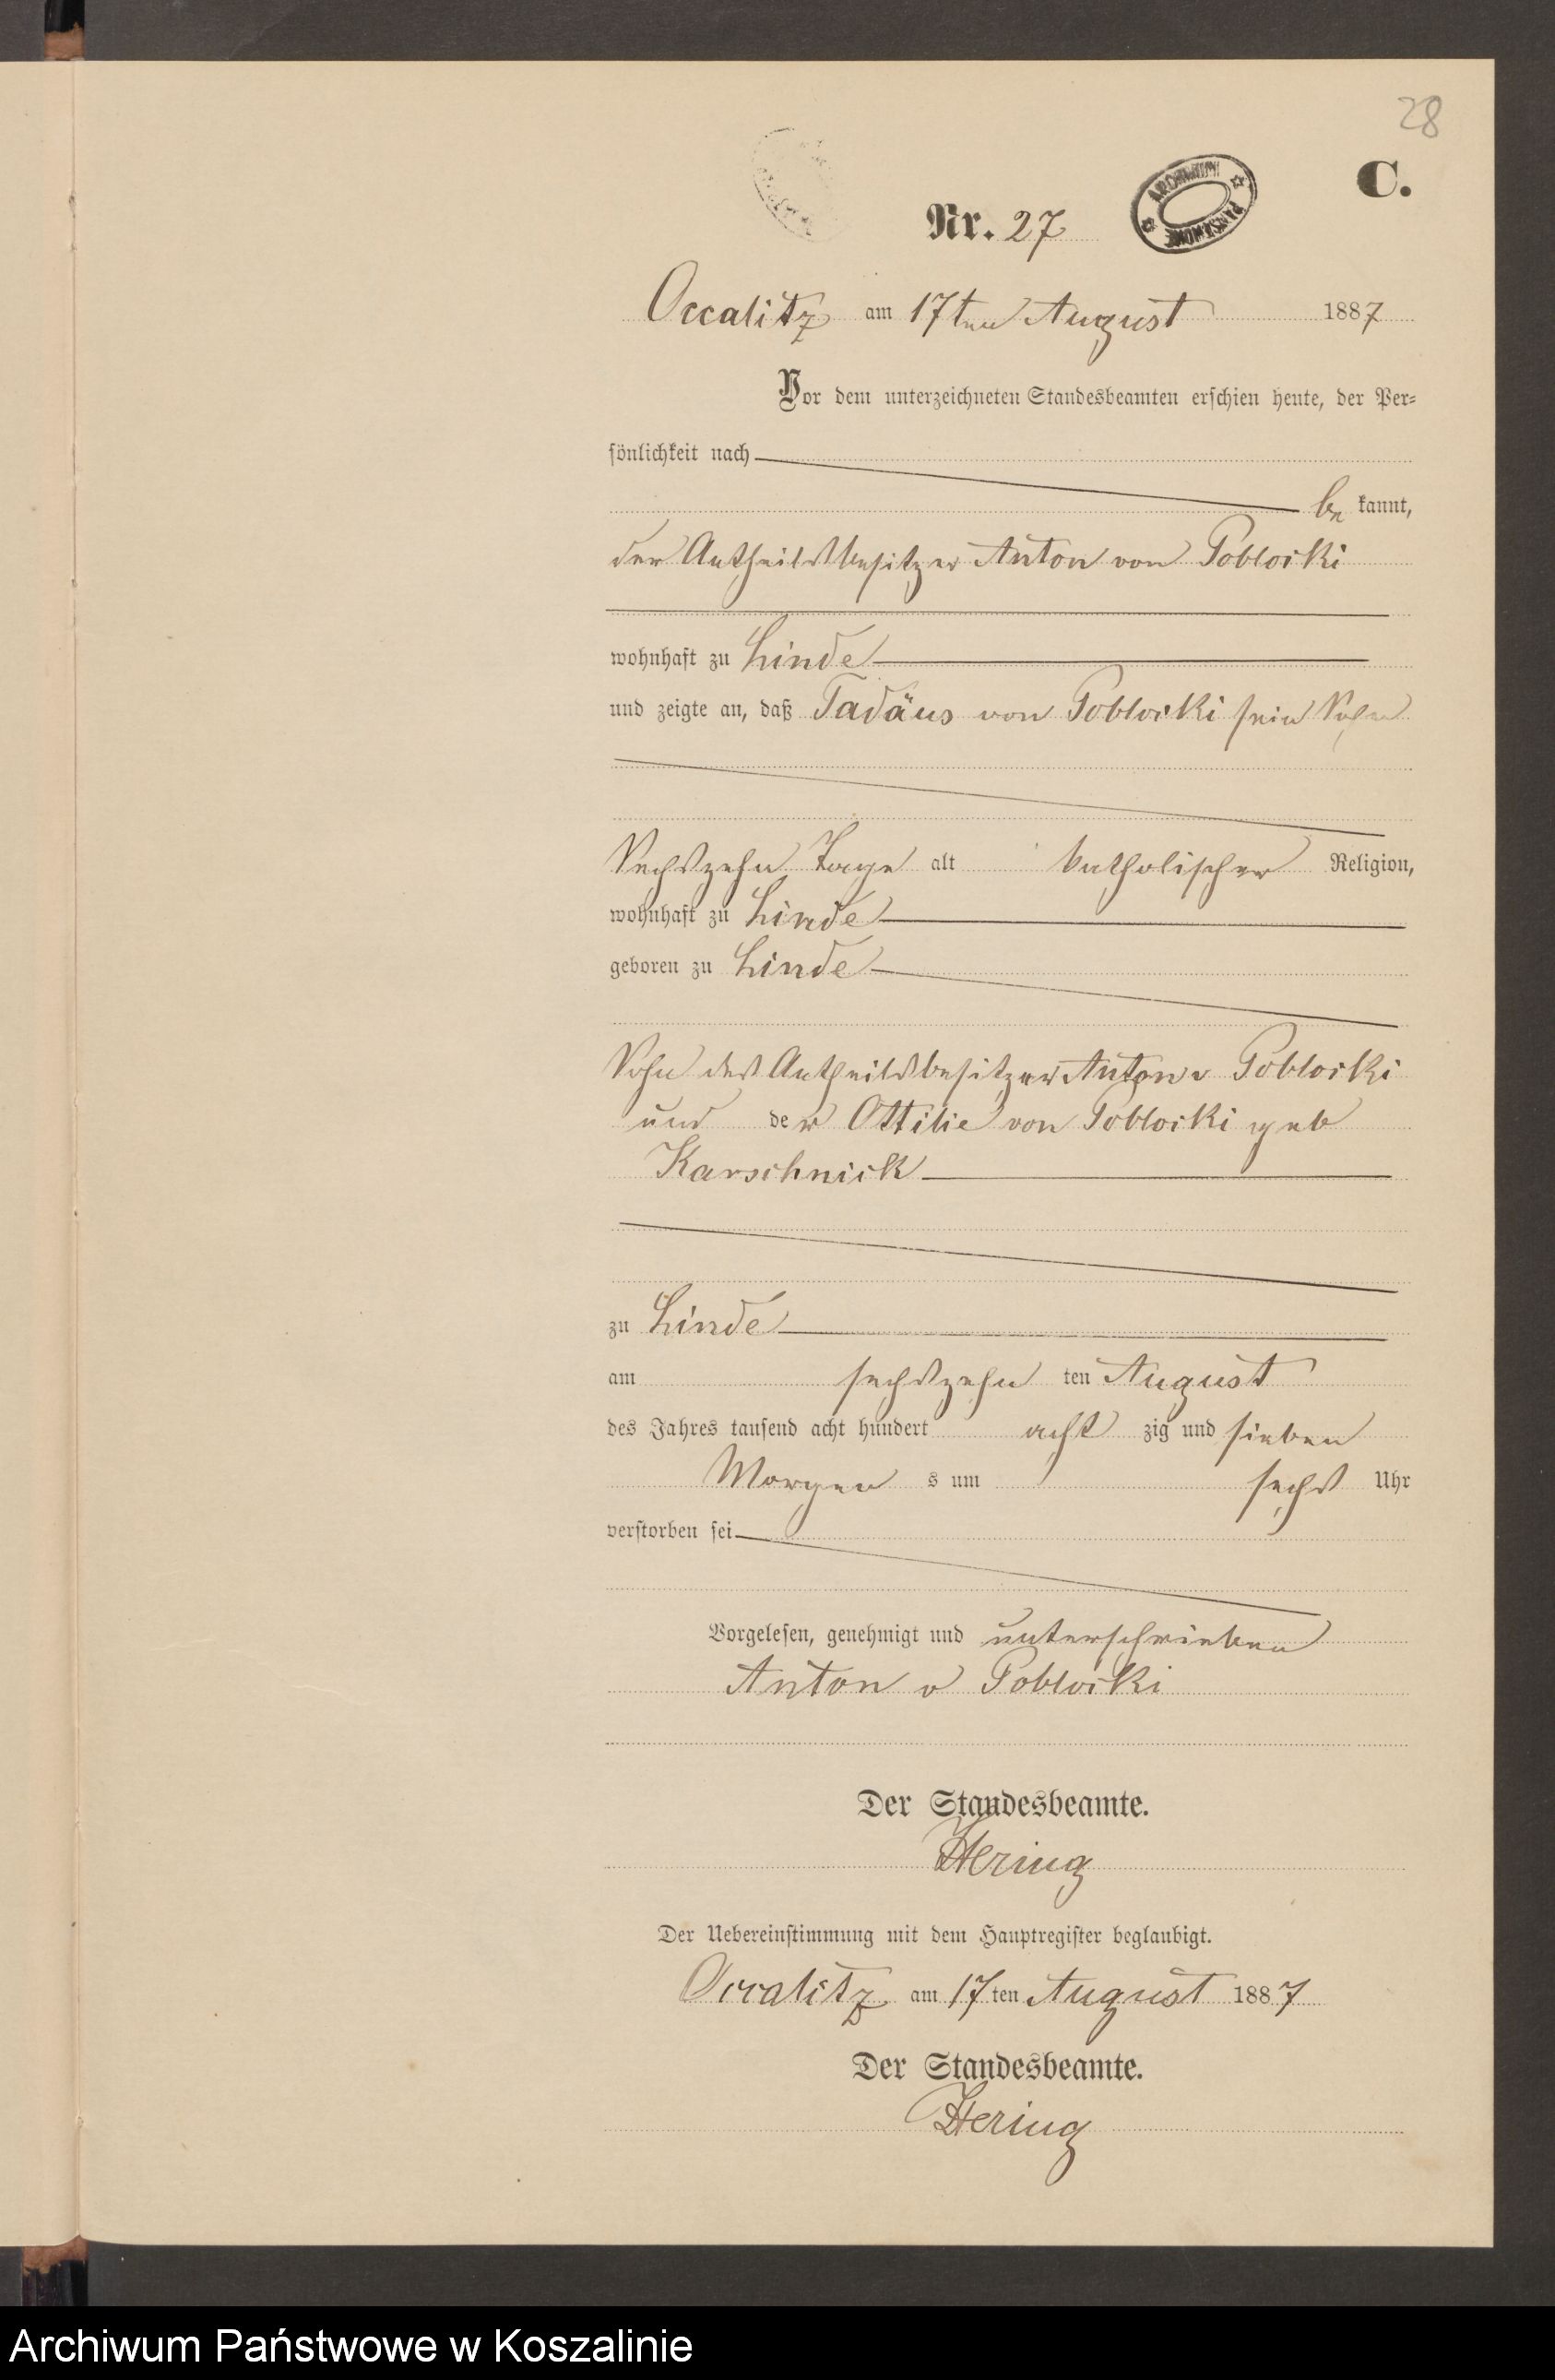 28
C.
ARCHIWUM
PAŃSTWOWE
Nr. 27
Occalitz am 17ten August 1887
Vor dem unterzeichneten Standesbeamten erschien heute, der Per=
sönlichkeit nach
be kannt,
der Antheilsbesitzer Anton von Poblocki
wohnhaft zu Linde
und zeigte an, daß Tadäus von Poblocki sein Sohn
Sechszehn Tage alt katholischer Religion,
wohnhaft zu Linde
geboren zu Linde
Sohn des Antheilsbesitzer Anton v Poblocki
und der Ottilie von Poblocki geb
Karschnick
zu Linde
am sechszehn ten August
des Jahres tausend acht hundert acht zig und sieben
Morgen s um sechs Uhr
verstorben sei
Vorgelesen, genehmigt und unterschrieben
Anton v Poblocki
Der Standesbeamte.
Hering
Der Uebereinstimmung mit dem Hauptregister beglaubigt.
Occalitz am 17 ten August 1887
Der Standesbeamte.
Hering
Archiwum Państwowe w Koszalinie